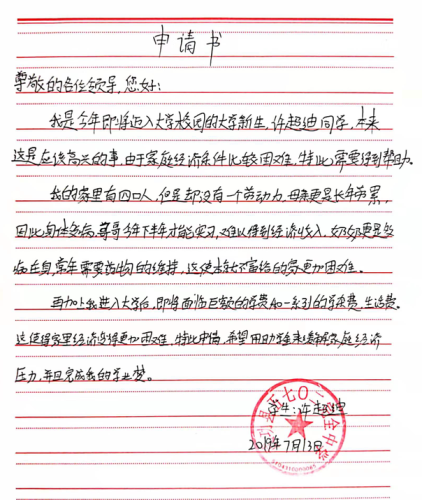 申请书
尊敬的各位领导,您好:
我是今年即将迈入大学校园的大学新生,许超迪同学,本来
这是应该高兴的事,由于家庭经济条件比较困难,特此需要得到帮助.
我的家里有四口人,但是却没有一个劳动力,母亲更是长年劳累,
因此身体多病,哥哥今年下半年才能实习,难以得到经济收入,奶奶更是
病在身,常年需要药物的维持,这使本就不富裕的家更加困难.
再加上我进入大学后,即将面临巨额的学费和一系列的学杂费,生活费.
这使得家里经济变得更加困难,特此申请,希望用助学金来缓解家庭经济
压力,并且完成我的学业梦。
学生:许超迪
2019年7月13日
县七〇二 中学